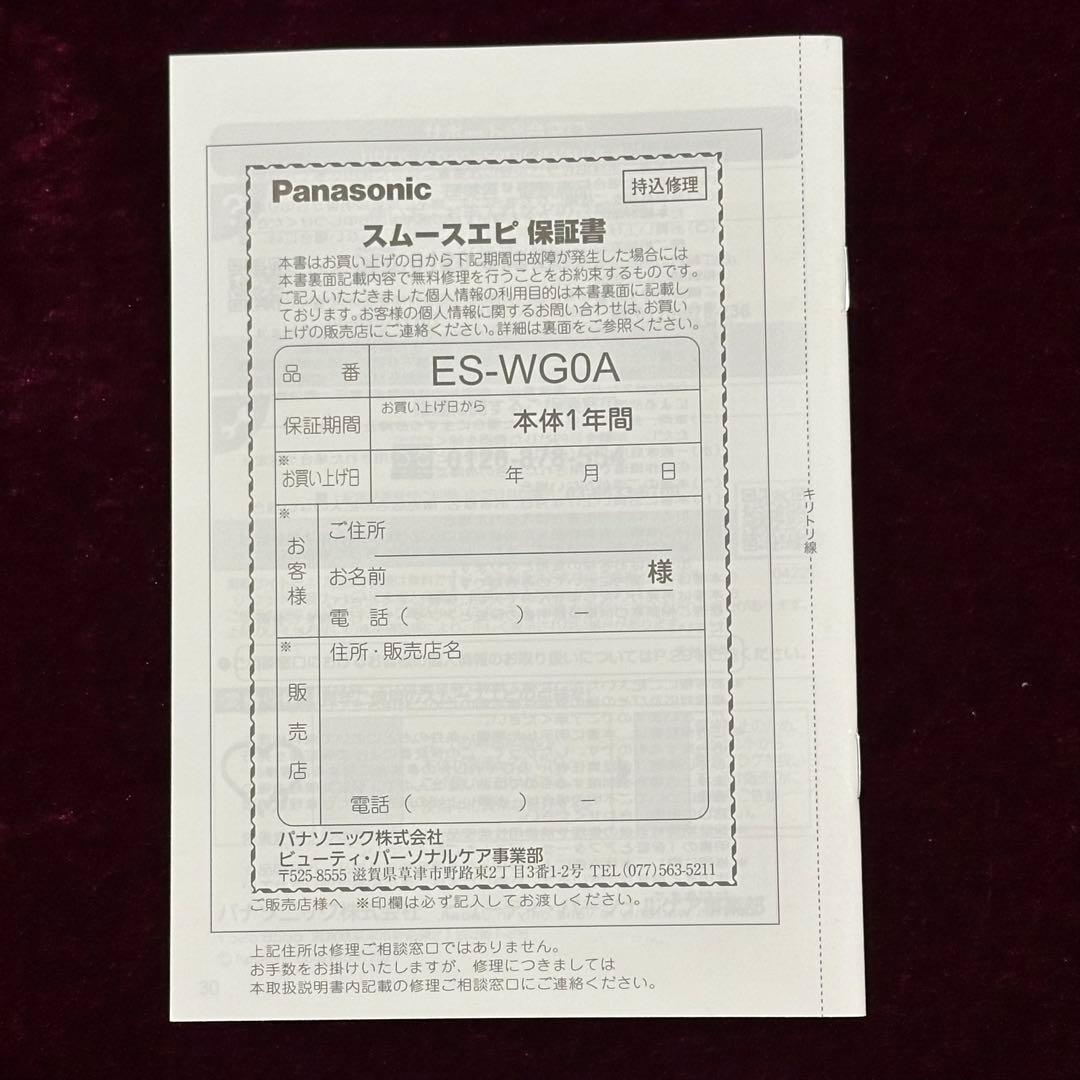 Panasonic
持込修理
スムースエピ 保証書
本書はお買い上げの日から下記期間中故障が発生した場合には
本書裏面記載内容で無料修理を行うことをお約束するものです。
ご記入いただきました個人情報の利用目的は本書裏面に記載し
ております。お客様の個人情報に関するお問い合わせは、お買い
上げの販売店にご連絡ください。詳細は裏面をご参照ください。
品 番 ES-WG0A
保証期間 お買い上げ日から 本体1年間
※お買い上げ日 年 月 日
※お客様
ご住所
お名前 様
電 話 ( ) −
※販売店
住所・販売店名
電話 ( ) −
パナソニック株式会社
ビューティ・パーソナルケア事業部
〒525-8555 滋賀県草津市野路東2丁目3番1-2号 TEL(077)563-5211
ご販売店様へ ※印欄は必ず記入してお渡しください。
上記住所は修理ご相談窓口ではありません。
お手数をお掛けいたしますが、修理につきましては
本取扱説明書内記載の修理ご相談窓口にご連絡ください。
キリトリ線